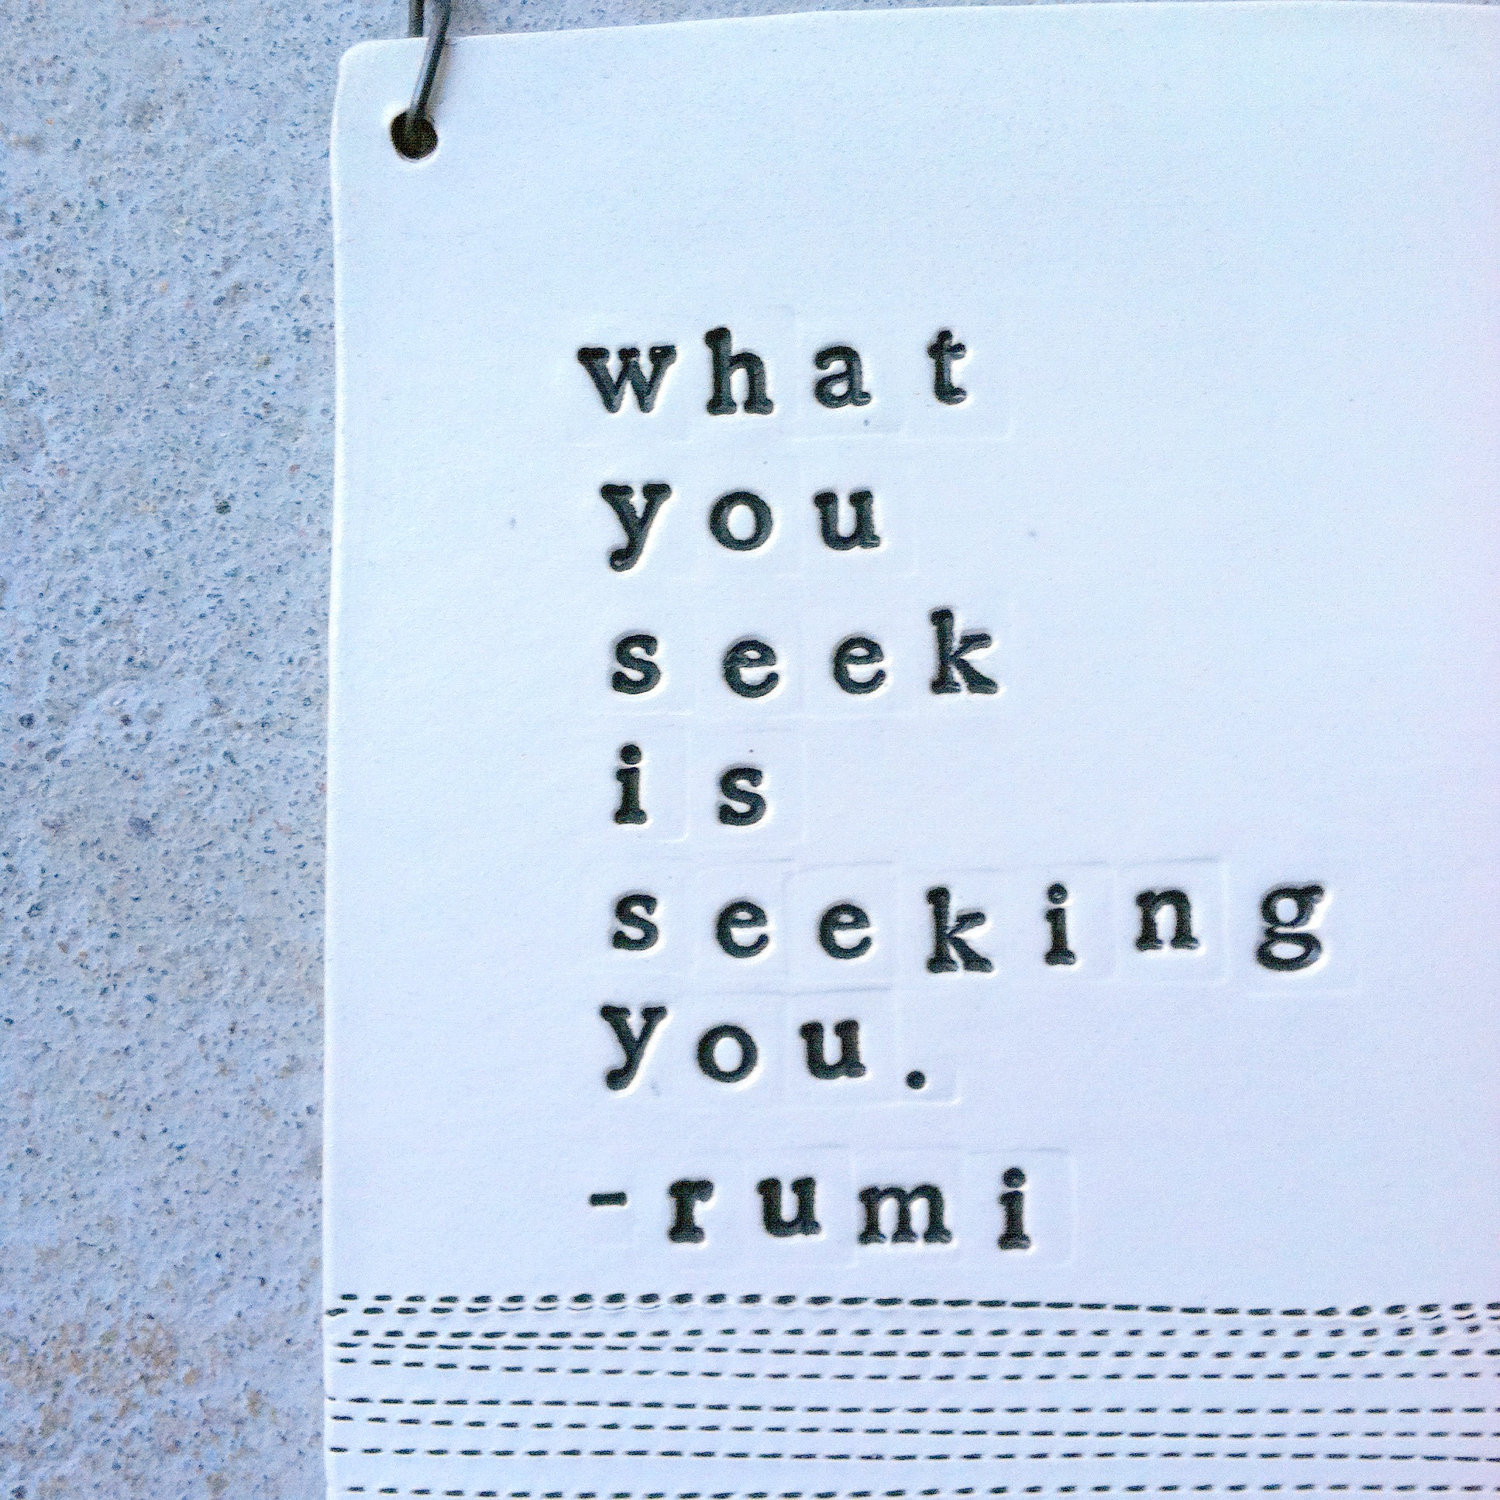 what
you
seek
is
seeking
you.
-rumi